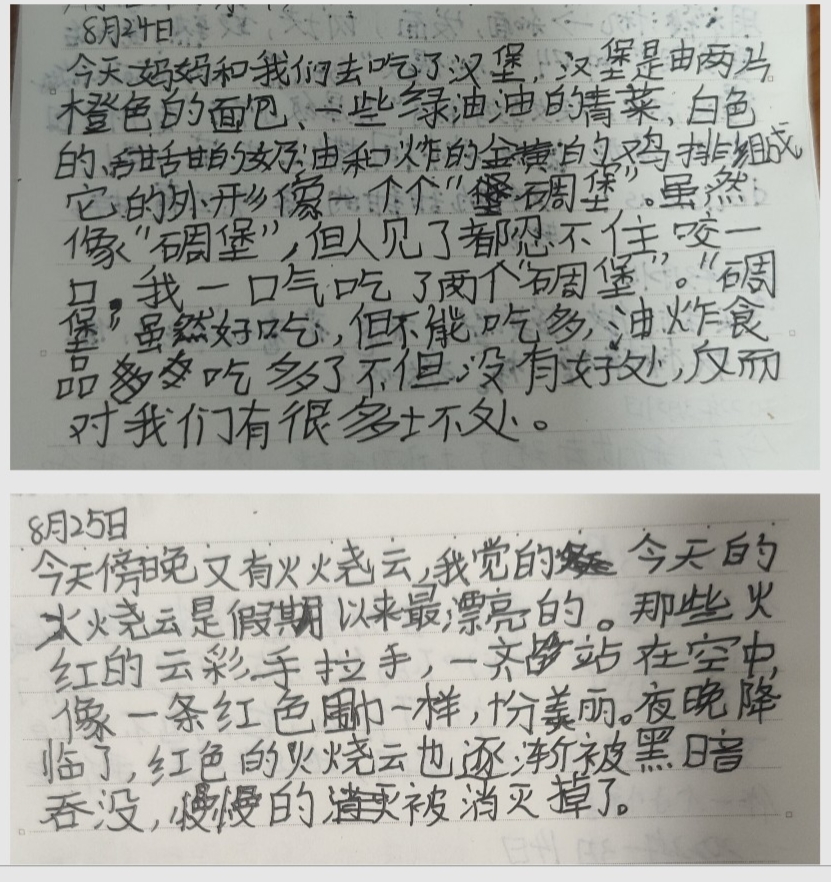 8月24日
今天妈妈和我们去吃了汉堡，汉堡是由两片
橙色的面包、一些绿油油的青菜、白色
的、甜甜的奶油和炸的金黄的鸡排组成
它的外形像一个个“堡碉堡”。虽然
像“碉堡”，但人见了都忍不住咬一
口。我一口气吃了两个“碉堡”。“碉
堡”虽然好吃，但不能吃多，油炸食
品多多吃多了不但没有好处，反而
对我们有很多坏处。
8月25日
今天傍晚又有火火烧云，我觉的今天的
火火烧云是假期以来最漂亮的。那些火
红的云彩手拉手，一齐站在空中，
像一条红色围巾一样，十分美丽。夜晚降
临了，红色的火火烧云也逐渐被黑暗
吞没，慢慢的消灭被消灭掉了。